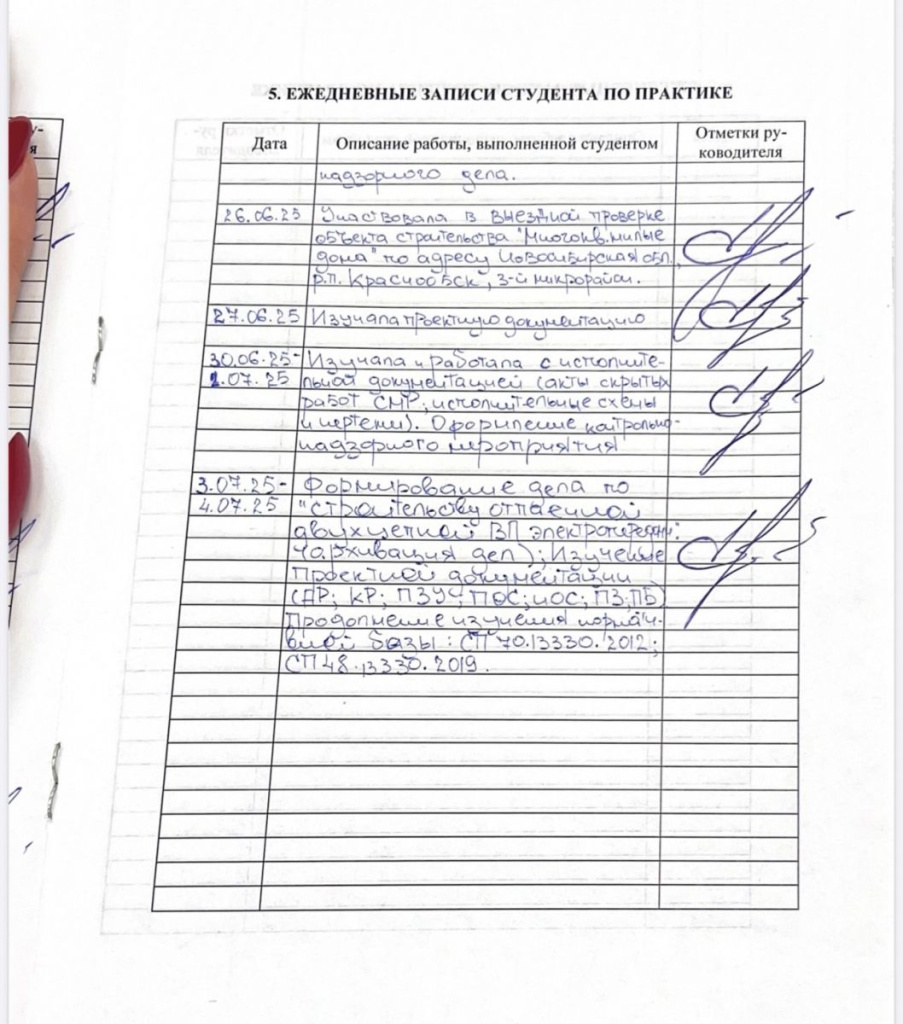 5. ЕЖЕДНЕВНЫЕ ЗАПИСИ СТУДЕНТА ПО ПРАКТИКЕ
Дата Описание работы, выполненной студентом Отметки ру-
ководителя
надзорного дела.
26.06.25 Участвовала в выездной проверке
объекта строительства "Многокв. жилые
дома" по адресу Новосибирская обл.,
р.п. Краснообск, 3-й микрорайон.
27.06.25 Изучала проектную документацию
30.06.25- Изучала и работала с исполните-
2.07.25 льной документацией (акты скрытых
работ СМР; исполнительные схемы
и чертежи). Оформление контрольно-
надзорного мероприятия
3.07.25- Формирование дела по
4.07.25 "строительству отпаечной
двухцепной ВЛ электропередач
(архивация дел); Изучение
Проектной документации
(АР; КР; ПЗУ; ПОС; ИОС; ПЗ; ПБ)
Продолжение изучения норма-
вной базы: СП 70.13330.2012;
СП 48.13330.2019.